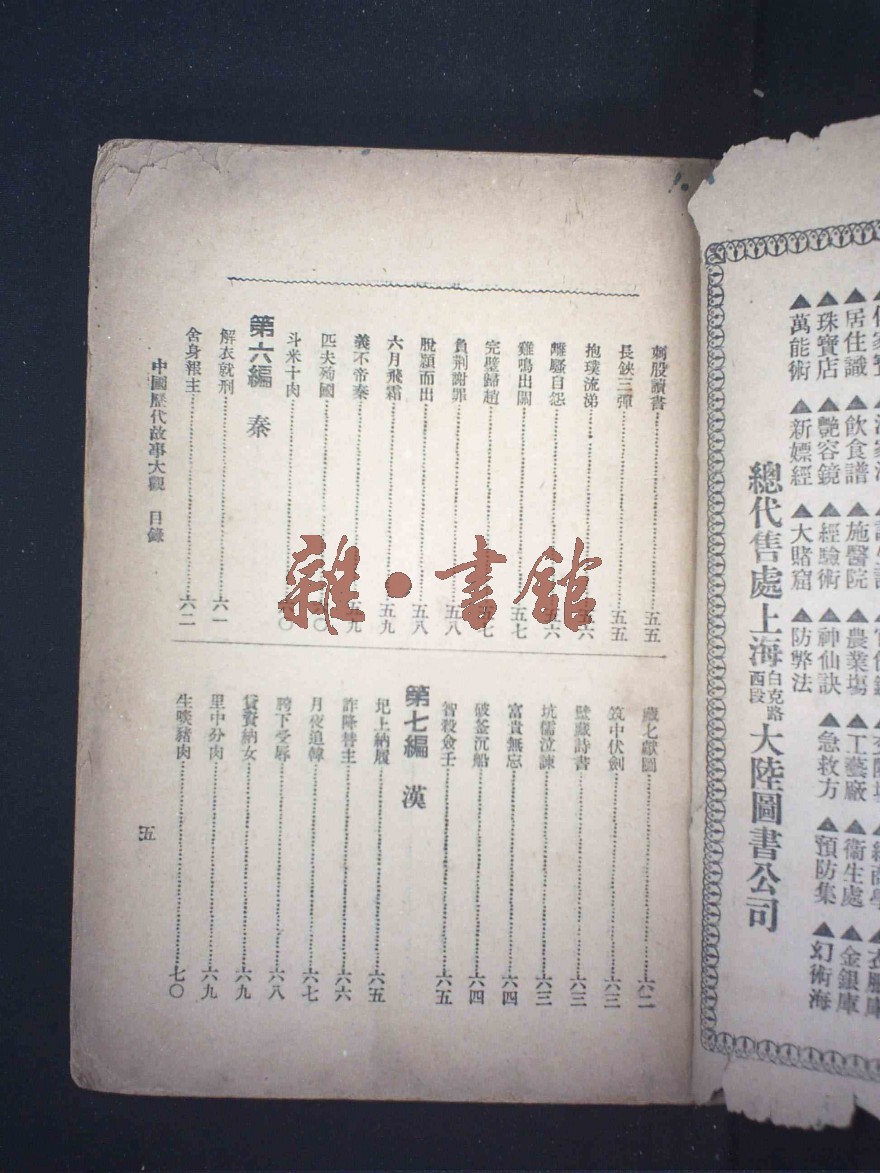 刺股讀書 五五
長鋏三彈 五五
抱璞流涕 五六
離騷自怨 五六
雞鳴出關 五七
完璧歸趙 五七
負荆謝罪 五八
脫潁而出 五八
六月飛霜 五九
義不帝秦 五九
匹夫殉國 六〇
斗米十肉 六〇
第六編 秦
解衣就刑 六一
舍身報主 六二
藏匕獻圖 六二
筑中伏劍 六三
壁藏詩書 六三
坑儒泣諫 六三
富貴無忘 六四
破釜沉船 六四
智殺僉壬 六五
第七編 漢
圯上納履 六五
詐降替主 六六
月夜追韓 六七
胯下受辱 六八
貸貲納女 六九
里中分肉 六九
生啖豬肉 七〇
中國歷代故事大觀 目錄
五
雜·書館
▲居住識 ▲飲食譜 ▲施醫院 ▲農業塲 ▲工藝廠 ▲衞生處 ▲金銀庫
▲珠寶店 ▲艷容鏡 ▲經驗術 ▲神仙訣 ▲急救方 ▲預防集 ▲幻術海
▲萬能術 ▲新嫖經 ▲大賭窟 ▲防弊法
總代售處上海白克路西段大陸圖書公司